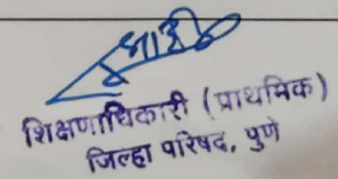 शिक्षणाधिकारी (प्राथमिक)
जिल्हा परिषद, पुणे